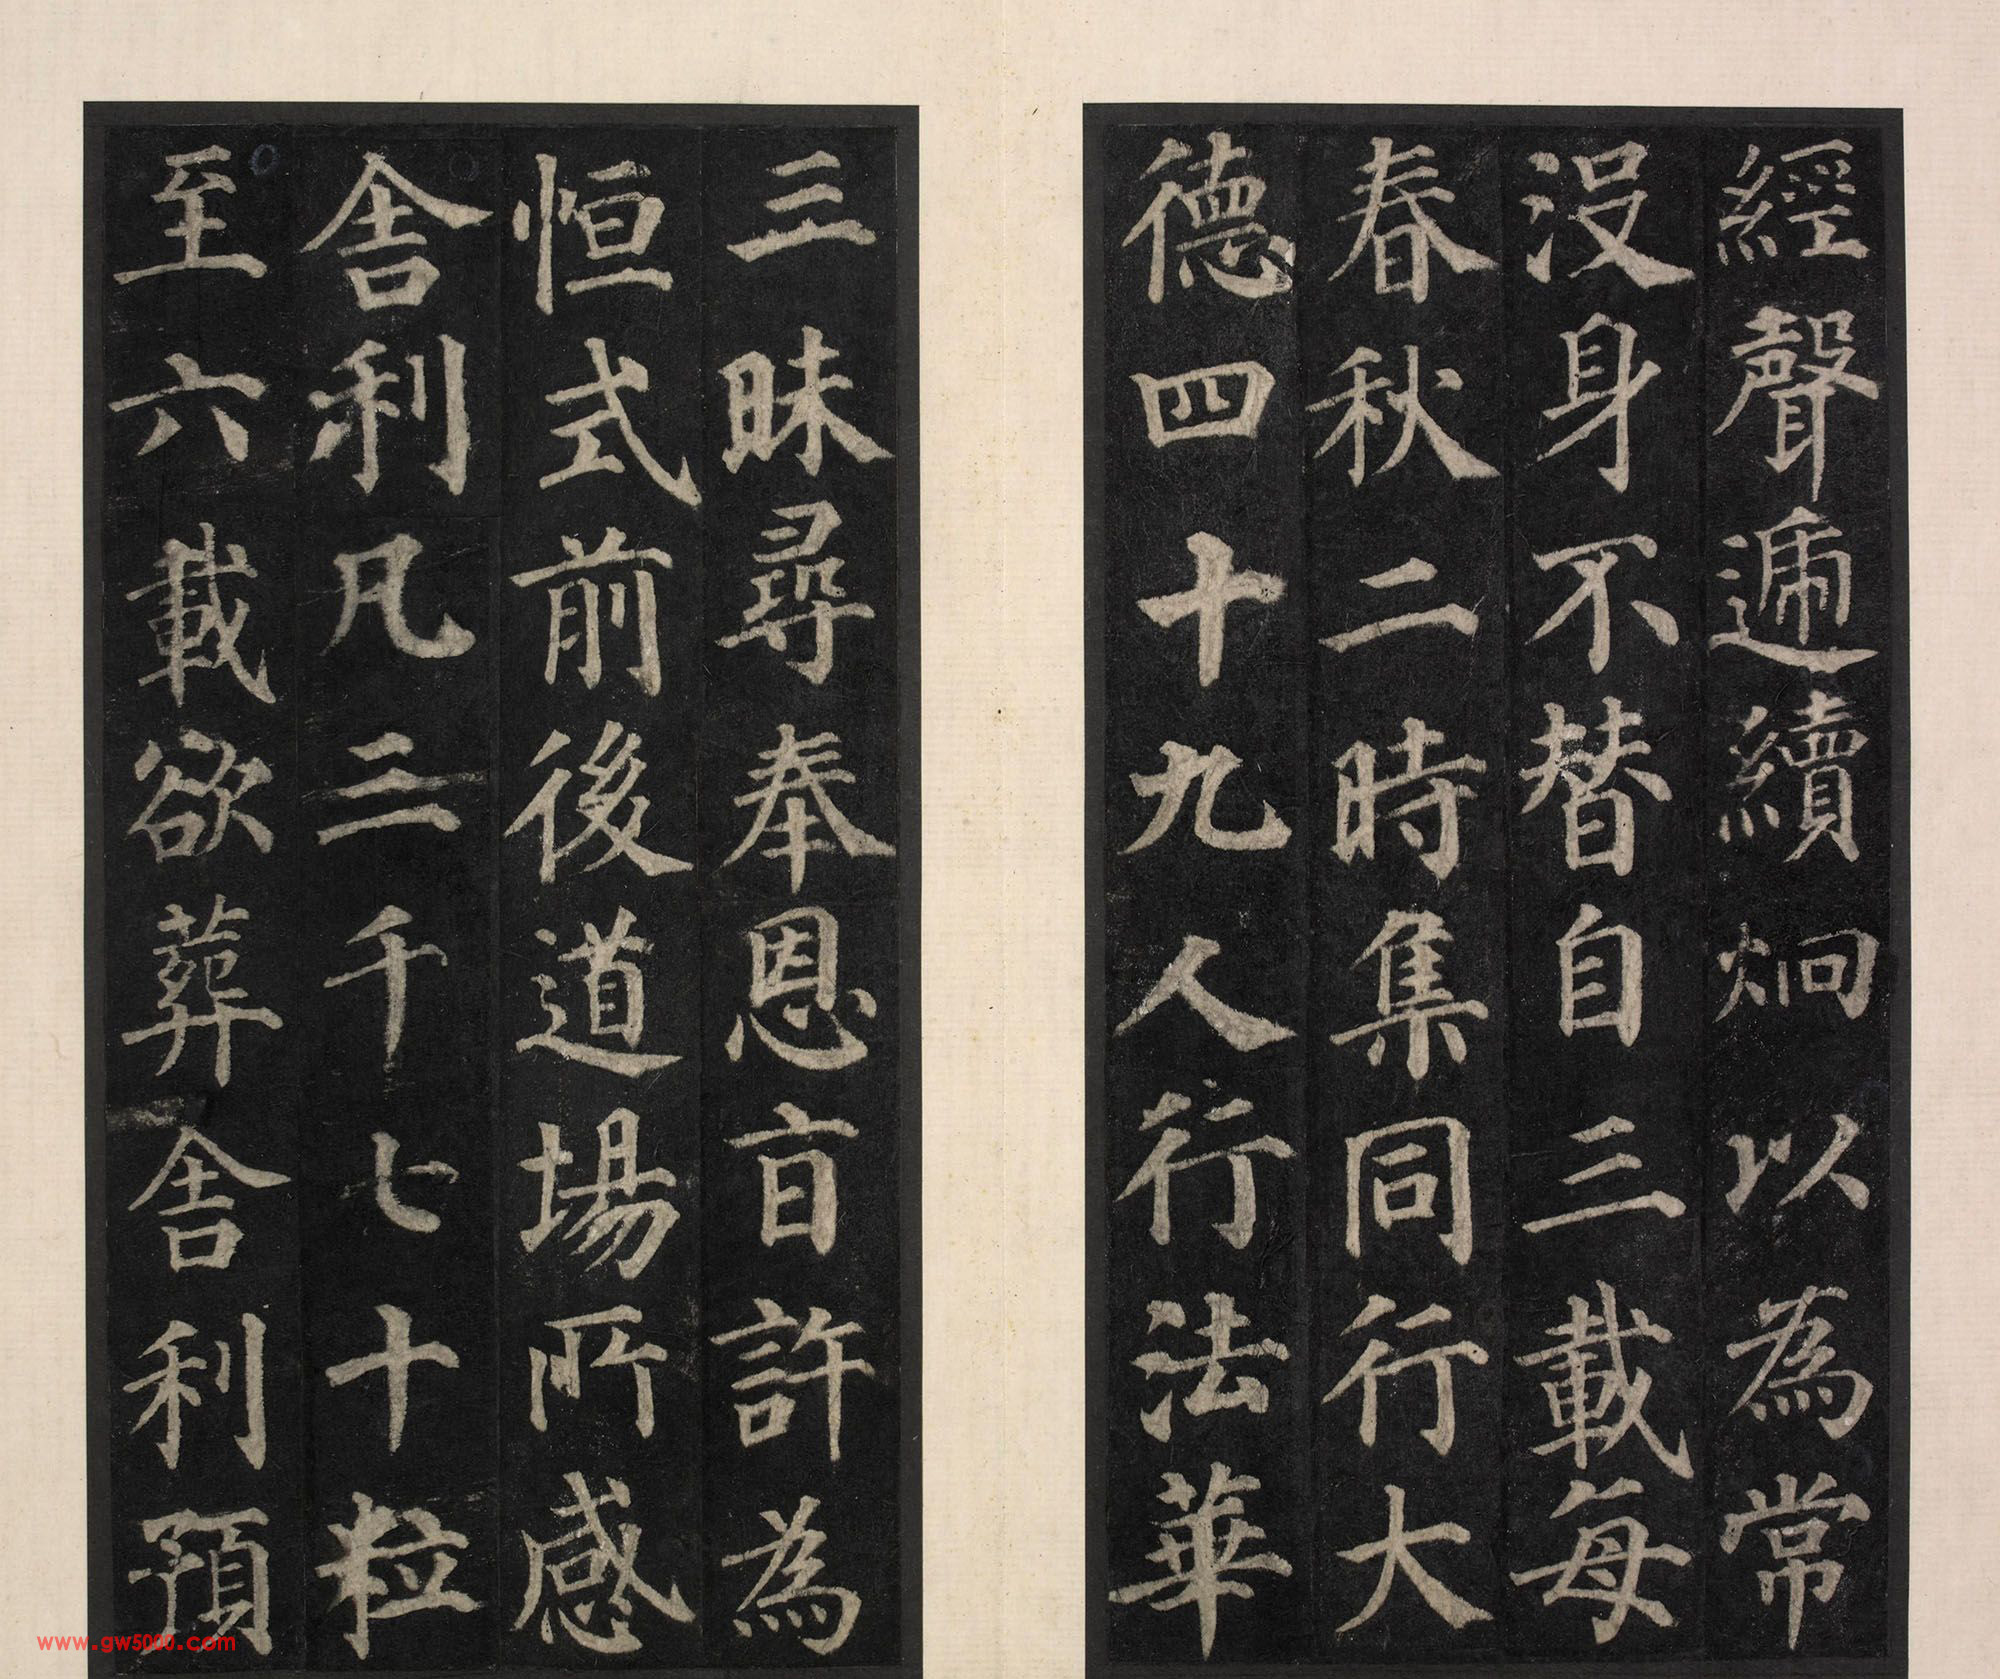 經聲遞續炯以為常
沒身不替自三載每
春秋二時集同行大
德四十九人行法華
三昧尋奉恩旨許為
恒式前後道場所感
舍利凡三千七十粒
至六載欲葬舍利預
www.gw5000.com